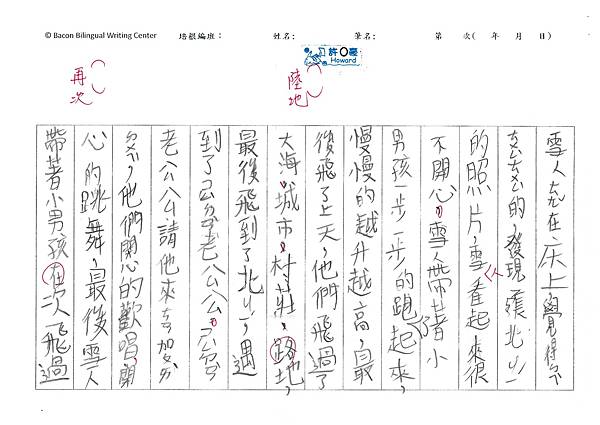 © Bacon Bilingual Writing Center 培根編班： 姓名： 筆名： 第 次( 年 月 日)
許O豪
Howard
雪人在床上覺得
的，發現一張北
的照片，雪人看起來很
不開心，雪人帶著小
男孩一步一步的跑起來，
慢慢的越升越高，最
後飛了上天，他們飛過了
陸地
大海，城市，村莊，路地，
最後飛到了北，遇
到了老公公，
老公公請他來加
，他們開心的歡唱，開
心的跳舞，最後雪人
再次
帶著小男孩在次飛過